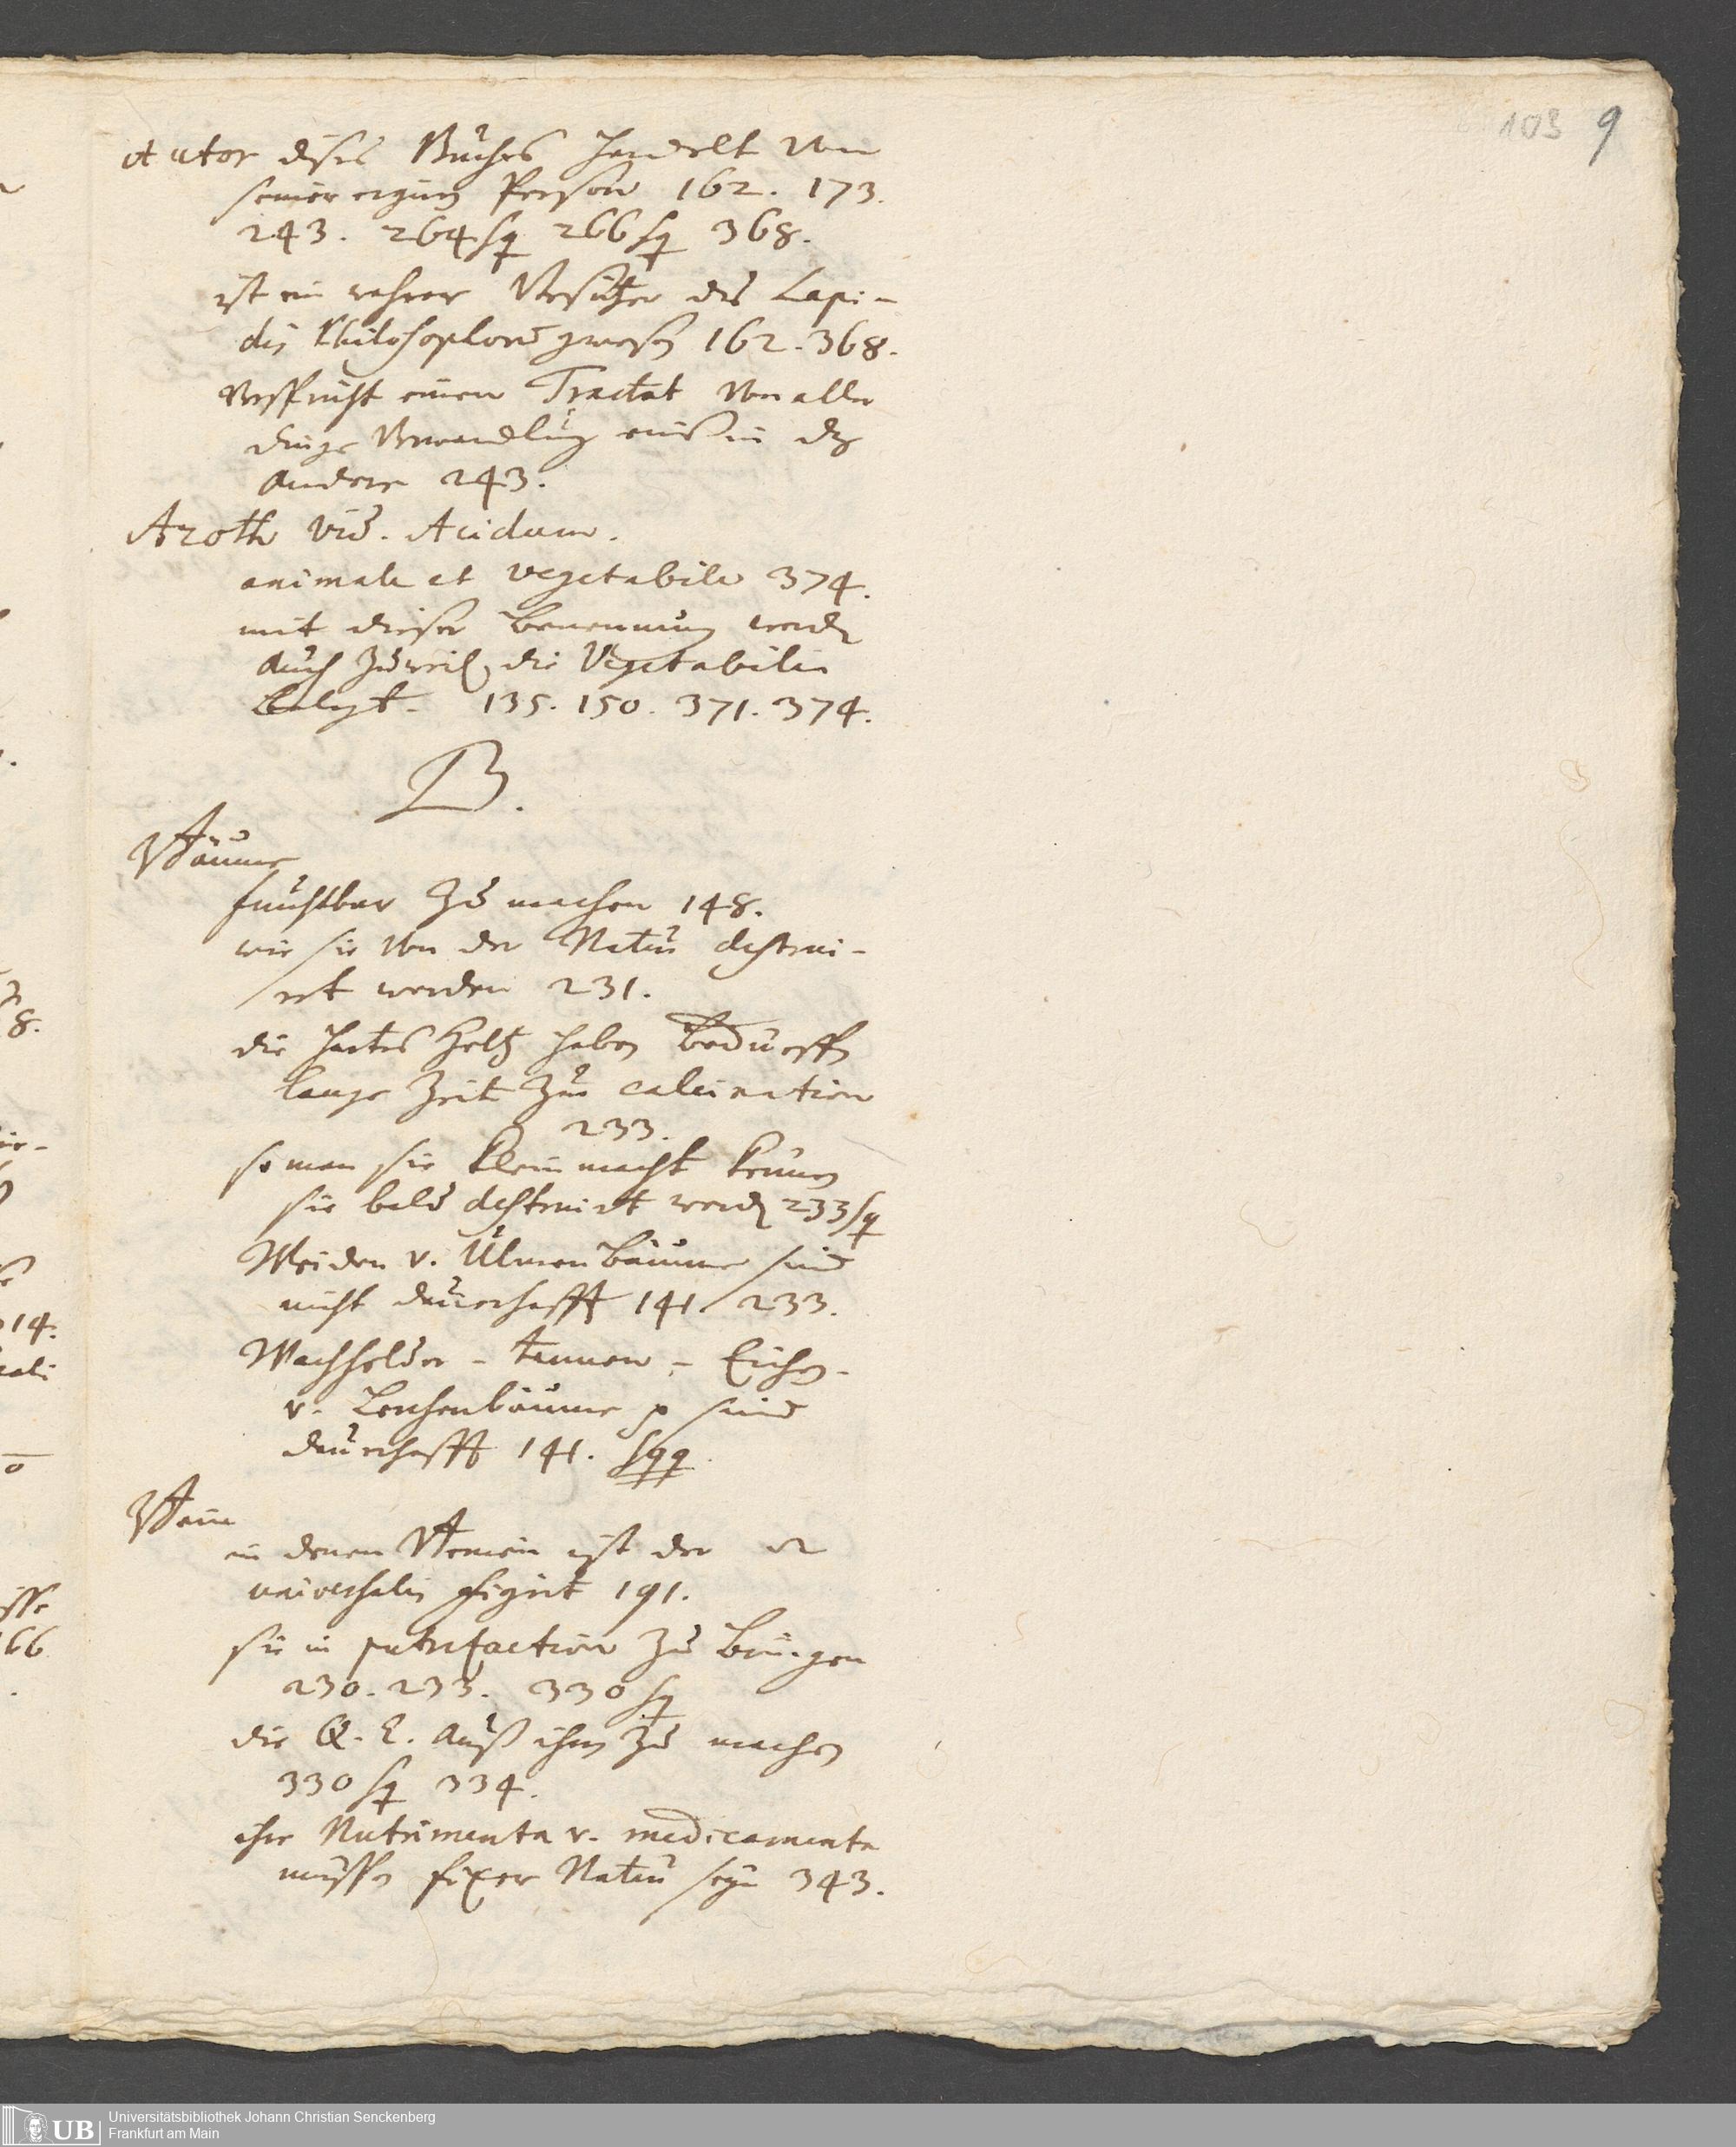 103 9
Autor dises Buches handelt von
seiner eignen Person 162. 173.
243. 264 sq 266 sq 368.
ist ein wahrer Besitzer des Lapi-
dis Philosophorum gewesen 162. 368.
verspricht einen Tractat von aller
dinge Verwandlung eins in dz
andere 243.
Azoth vid. Acidum.
animale et vegetabile 374.
mit dieser Benennung werden
auch zuweilen die Vegetabilia
belegt. 135. 150. 371. 374.
B.
Bäume
fruchtbar zu machen 148.
wie sie von der Natur destrui-
ret werden 231.
die hartes Holtz haben bedürffen
lange Zeit zur calcination
233.
so man sie klein macht können
sie bald destruirt werden 233 sq
Weiden v. Ulmen Bäume sind
nicht dauerhafft 141. 233.
Wachholder - tannen - Eichen -
v. Lerchenbäume p sind
dauerhafft 141. sqq.
Bein
in denen Beinen ist der
universalis figirt 191.
sie in putrefaction zu bringen
230. 233. 330 sq
die Q. E. auß ihnen zu machen
330 sq 334.
ihre Nutrimenta v. medicamenta
müssen fixer Natur seyn 343.
8.
14.
66
UB
Universitätsbibliothek Johann Christian Senckenberg
Frankfurt am Main